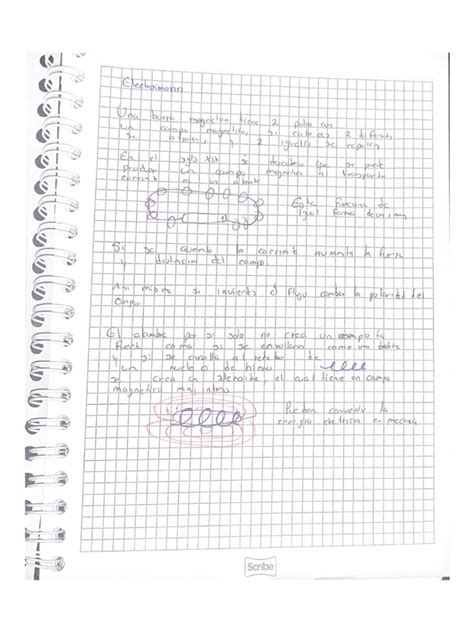 Electroiman
Una barra magnetica tiene 2 polos con
un campo magnetico, si colocas 2 diferentes
se atraen, y 2 iguales se repelen
En el siglo XIX se descubre que se puede
producir un campo magnetico al transportar
corriente en un alambre
Este funciona de
igual forma de un iman
Si se aumenta la corriente aumenta la fuerza
y distancia del campo
Asi mismo si invierte el flujo cambia la polaridad del
campo
El alambre por si solo no crea un campo tan
fuerte como si se enrollara como una bobina
y si se enrolla al rededor de
un nucleo de hierro
se crea un solenoide, el cual tiene un campo
magnetico mas intenso
Pueden convertir la
energia electrica en mecanica
Scribe